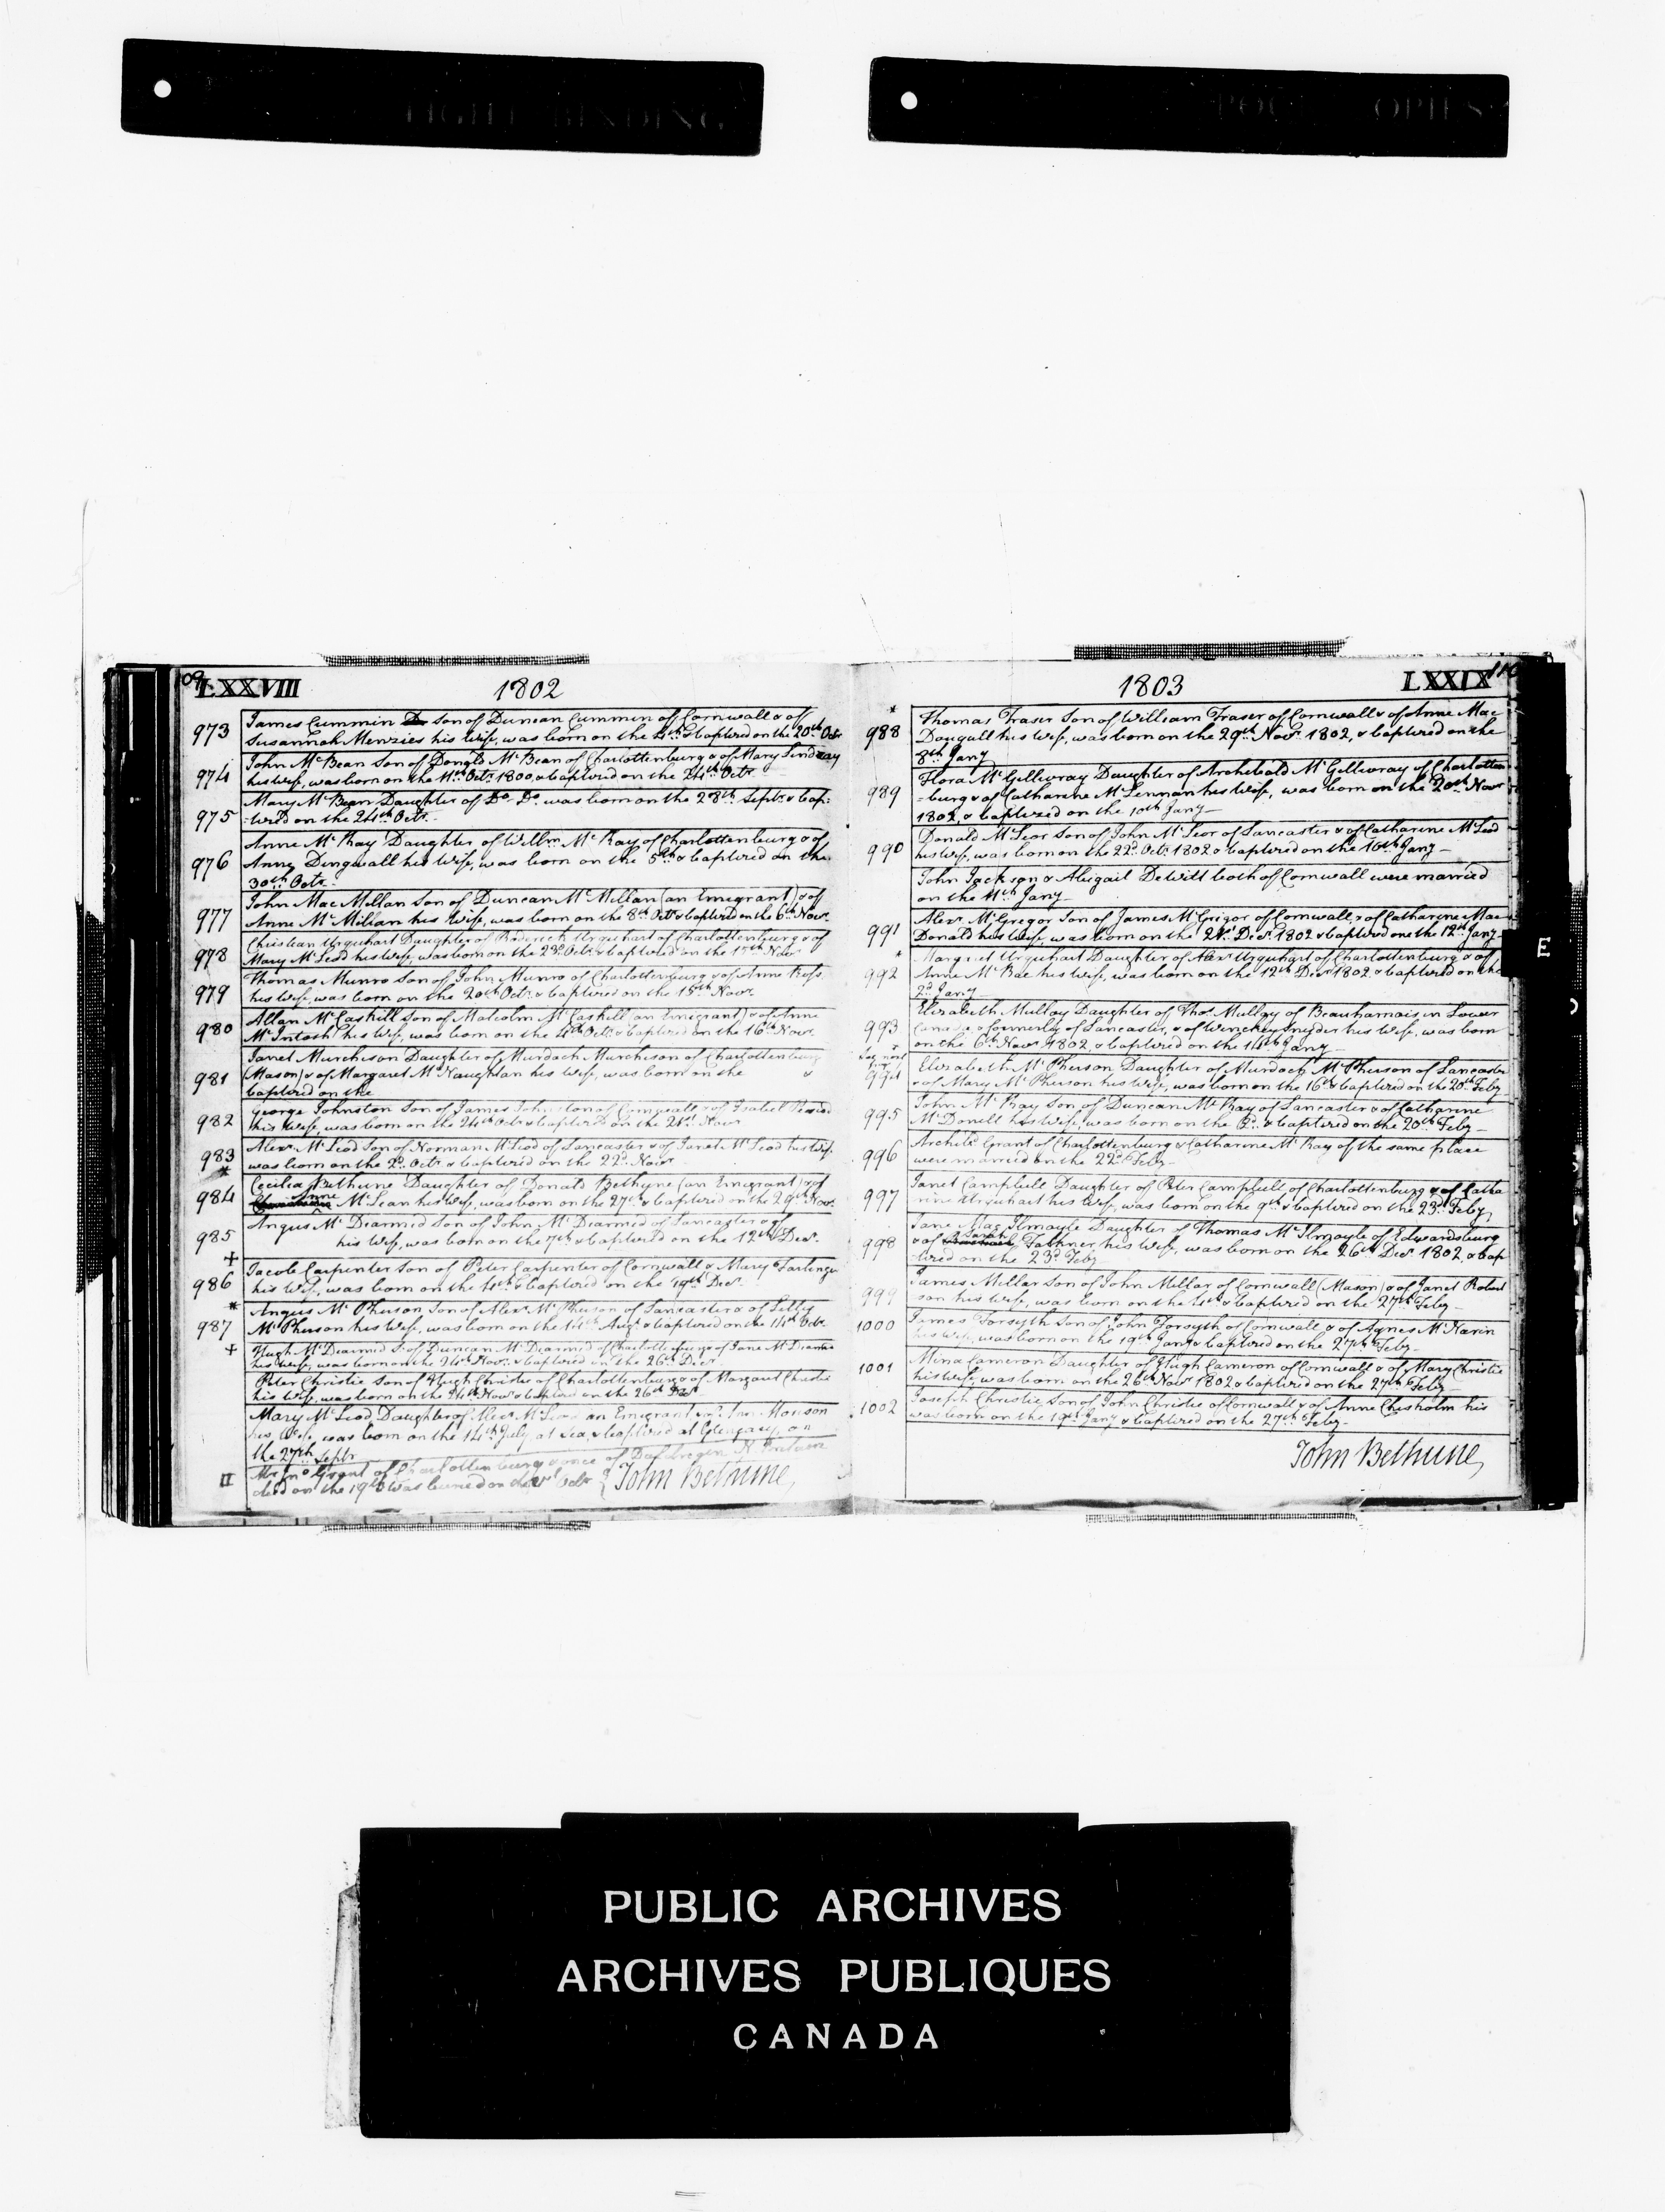 LXXVIII
1802
973
James Cummin Son of Duncan Cummin of Cornwall & of
Susannah Menzies his Wife, was born on the 4th & baptized on the 20th Octr
974
John McBean Son of Donald McBean of Charlottenburg & of Mary Lindsay
his wife, was born on the 11th Octr 1800, & baptized on the 24th Octr
975
Mary McBean Daughter of Do Do was born on the 28th Septr & bap-
tized on the 24th Octr
976
Anne McKay Daughter of Willm McKay of Charlottenburg & of
Anne Dingwall his Wife, was born on the 5th & baptized on the
30th Octr
977
John MacMillan Son of Duncan McMillan (an Emigrant) & of
Anne McMillan his Wife, was born on the 8th Octr & baptized on the 6th Novr
978
Christian Urquhart Daughter of Roderick Urquhart of Charlottenburg & of
Mary McLeod his wife, was born on the 23d Octr & baptized on the Novr
979
Thomas Munro Son of John Munro of Charlottenburg & of Anne Ross
his wife, was born on the 20th Octr & baptized on the 15th Novr
980
Allan McCaskill Son of Malcolm McCaskill (an Emigrant) & of Anne
McIntosh his Wife, was born on the 4th Octr & baptized on the 16th Novr
981
Janet Murchison Daughter of Murdoch Murchison of Charlottenburg
(Mason) & of Margaret McNaughtan his Wife, was born on the &
baptized on the
982
George Johnston Son of James Johnston of Cornwall & of Isabel
his Wife, was born on the 24th Octr & baptized on the 21st Novr
983
Alexr McLeod Son of Norman McLeod of Lancaster & of Janet McLeod his Wife,
was born on the 2d Octr & baptized on the 22d Novr
984
Cecilia Bethune Daughter of Donald Bethune (an Emigrant) & of
Anne
McLean his Wife, was born on the 27th & baptized on the 29th Novr
985
Angus McDiarmid Son of John McDiarmid of Lancaster & of
his Wife, was born on the 7th & baptized on the 12th Decr
986
Jacob Carpenter Son of Peter Carpenter of Cornwall & Mary
his Wife, was born on the 4th & baptized on the 19th Decr
987
Angus McPherson Son of Alexr McPherson of Lancaster & of
McPherson his Wife, was born on the 14th Augt & baptized on the 14th Octr
Hugh McDiarmid S. of Duncan McDiarmid of Charlottenburg & of Jane McDiarmid
his Wife, was born on the Novr & baptized on the 26th Decr
Peter Christie Son of Hugh Christie of Charlottenburg & of Margaret Christie
his Wife, was born on the 24th Novr & baptized on the 26th Decr
Mary McLeod Daughter of Alexr McLeod an Emigrant & of Morison
his Wife was born on the 14th July at Sea, & baptized at Glengary on
the 27th Septr
Mr Grant of Charlottenburg & once of
died on the 19th & was buried on the Octr
John Bethune,
1803
LXXIX
988
Thomas Fraser Son of William Fraser of Cornwall & of Anne Mac-
Dougall his Wife, was born on the 29th Novr 1802, & baptized on the
8th Jany
989
Flora McGillivray Daughter of Archibald McGillivray of Charlotten-
burg & of Catharine McLennan his Wife, was born on the 20th Novr
1802, & baptized on the 10th Jany
990
Donald McLeor Son of John McLeor of Lancaster & of Catharine McLeod
his Wife, was born on the 22d Octr 1802 & baptized on the 16th Jany
John Jackson & Abigail DeWitt both of Cornwall were married
on the 11th Jany
991
Alexr McGregor Son of James McGrigor of Cornwall & of Catharine Mac-
Donald his Wife, was born on the 21st Decr 1802 & baptized on the 12th Jany
992
Margaret Urquhart Daughter of Alexr Urquhart of Charlottenburg & of
Anne McRae his Wife, was born on the 12th Decr 1802 & baptized on the
2d Jany
993
Elizabeth Mulloy Daughter of Thos Mulloy of Beauharnais in Lower
Canada & formerly of Lancaster, & of Snyder his Wife, was born
on the 6th Novr 1802 & baptized on the 14th Jany
994
Elizabeth McPherson Daughter of Murdoch McPherson of Lancaster
& of Mary McPherson his Wife, was born on the 16th & baptized on the 20th Feby
995
John McKay Son of Duncan McKay of Lancaster & of Catharine
McDonell his Wife, was born on the & baptized on the 20th Feby
996
Archibd Grant of Charlottenburg & Catharine McKay of the same place
were married on the 22d Feby
997
Janet Campbell Daughter of Peter Campbell of Charlottenburg & of Catha-
rine Urquhart his Wife, was born on the 9th & baptized on the 23d Feby
998
Jane Mac Ilmoyle Daughter of Thomas McIlmoyle of Edwardsburg
& of Sarah Falkner his Wife, was born on the 26th Decr 1802, & bap-
tized on the 23d Feby
999
James Millar Son of John Millar of Cornwall (Mason) & of Janet Robert-
son his Wife, was born on the & baptized on the 27th Feby
1000
James Forsyth Son of John Forsyth of Cornwall & of Agnes McNarin
his Wife, was born on the 19th Jany & baptized on the 27th Feby
1001
Mina Cameron Daughter of Hugh Cameron of Cornwall & of Mary Christie
his Wife, was born on the 26th Novr 1802 & baptized on the 27th Feby
1002
Joseph Christie Son of John Christie of Cornwall & of Anne Chisholm his
was born on the 19th Jany & baptized on the 27th Feby
John Bethune,
E
PUBLIC ARCHIVES
ARCHIVES PUBLIQUES
CANADA